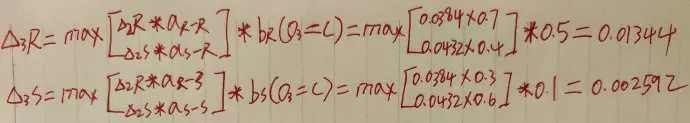 Δ₃R = max [Δ₂R * aR-R Δ₂S * aS-R] * bR(O₃=C) = max [0.0384×0.7 0.0432×0.4] * 0.5 = 0.01344
Δ₃S = max [Δ₂R * aR-S Δ₂S * aS-S] * bS(O₃=C) = max [0.0384×0.3 0.0432×0.6] * 0.1 = 0.002592